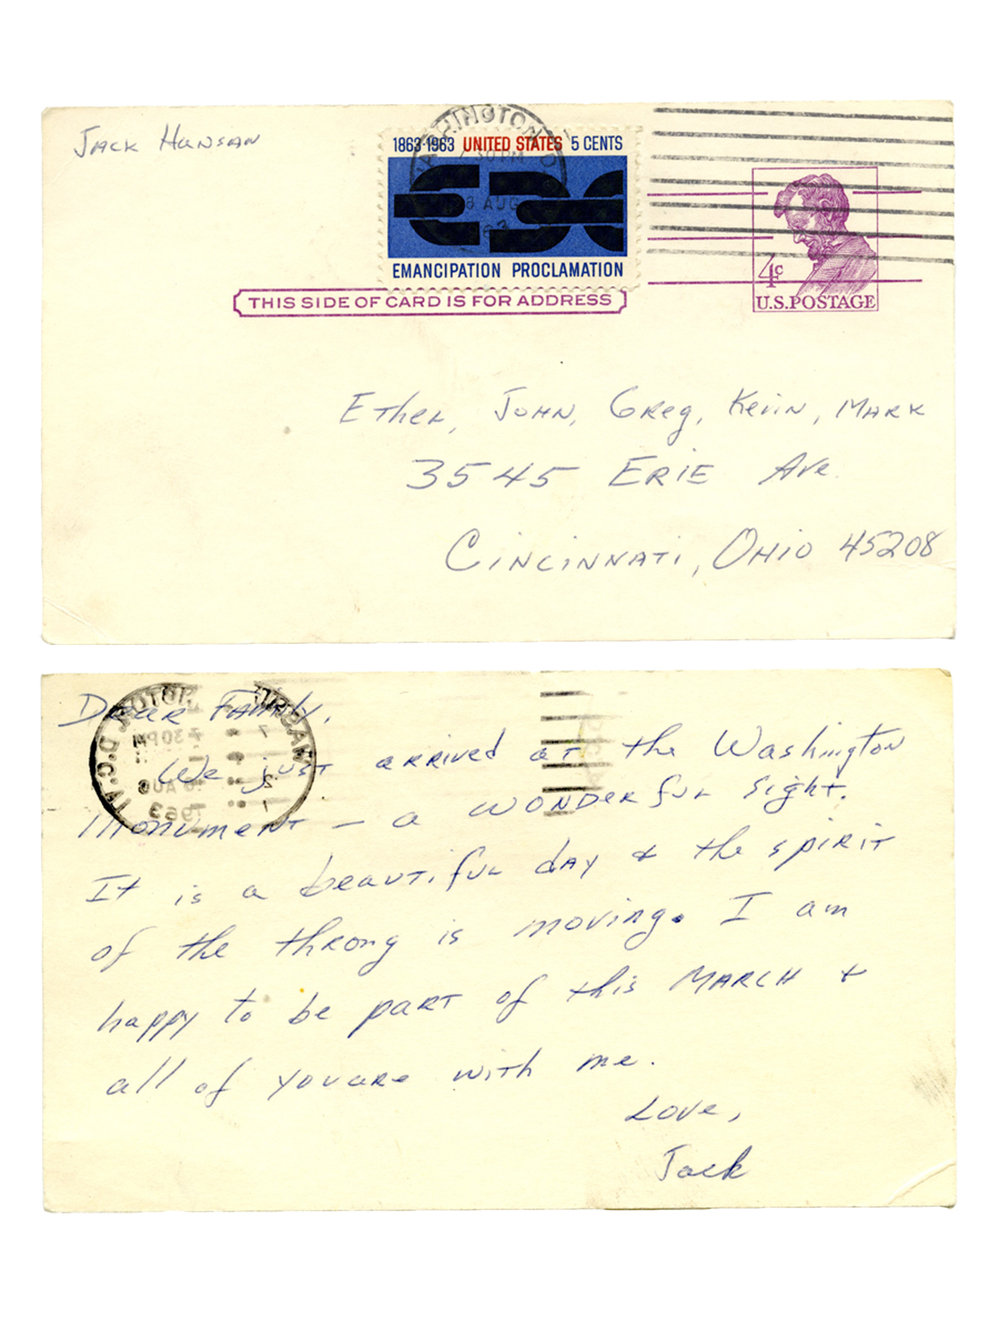 Jack Hansan
WASHINGTON, D.C.
7 30 PM
AUG
63
1863-1963 UNITED STATES 5 CENTS
EMANCIPATION PROCLAMATION
4c
U.S. POSTAGE
THIS SIDE OF CARD IS FOR ADDRESS
Ethel, John, Greg, Kevin, Mark
3545 Erie Ave.
Cincinnati, Ohio 45208
Dear Family,
We just arrived at the Washington
Monument – a wonderful sight.
It is a beautiful day & the spirit
of the throng is moving. I am
happy to be part of this March &
all of you are with me.
Love,
Jack
WASH
D.C.
7 30 PM
AUG
1963